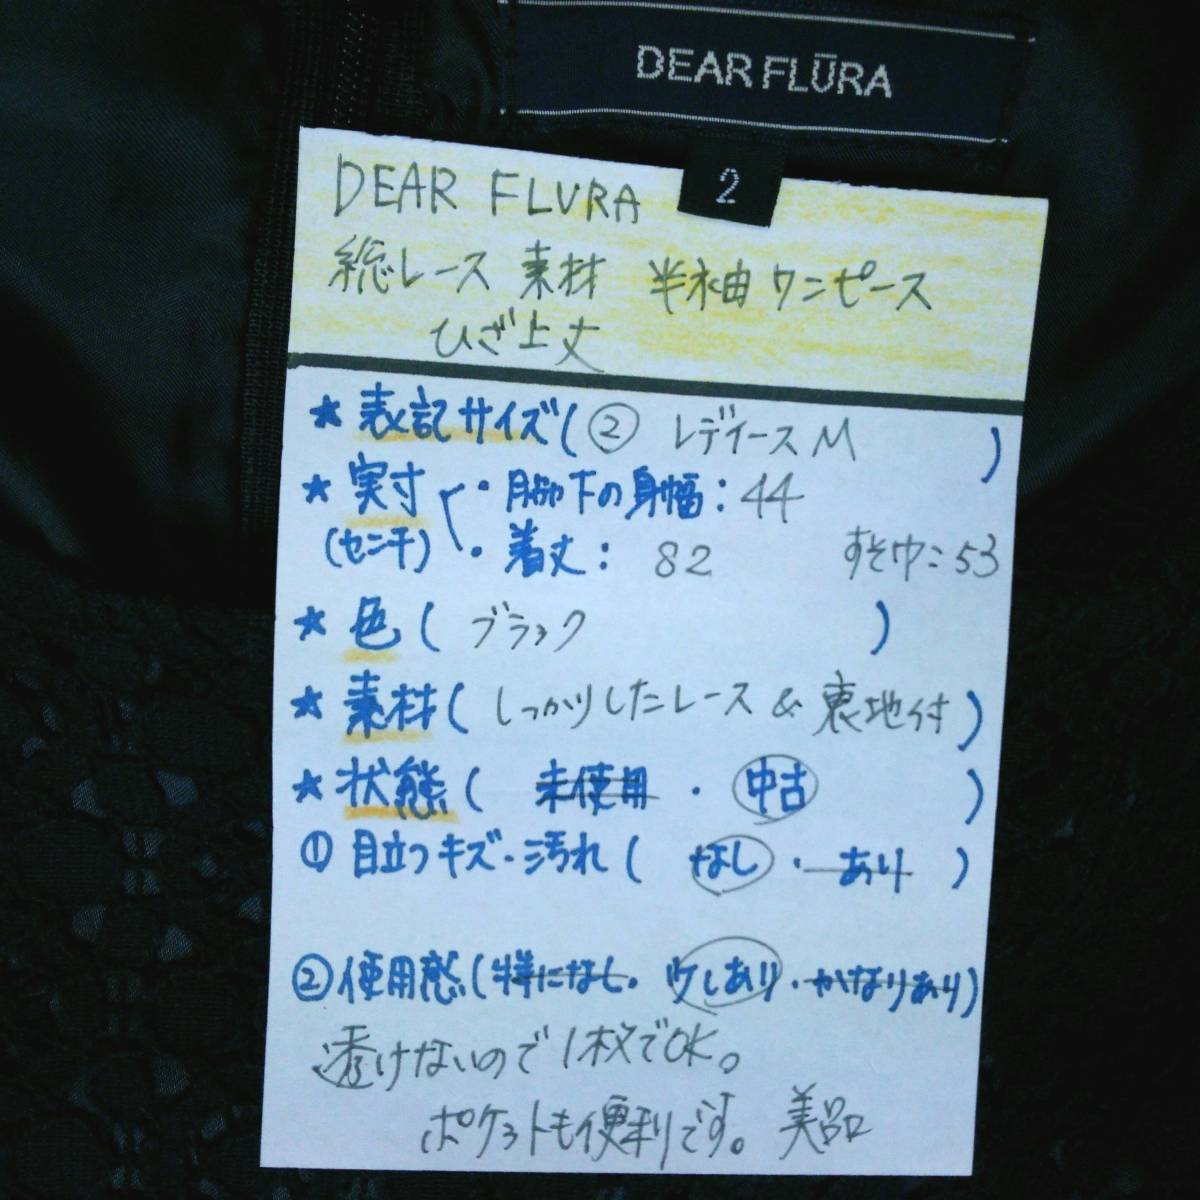 DEAR FLŪRA
2
DEAR FLURA
総レース 素材 半袖ワンピース
ひざ上丈
★ 表記サイズ( ② レディースM )
★ 実寸 ・脇下の身幅: 44
(センチ) ・着丈: 82 すそ巾: 53
★ 色( ブラック )
★ 素材( しっかりしたレース & 裏地付 )
★ 状態( 未使用 ・ 中古 )
① 目立つキズ・汚れ( なし ・ あり )
② 使用感(特になし・少しあり・かなりあり)
透けないので1枚でOK。
ポケットも便利です。 美品